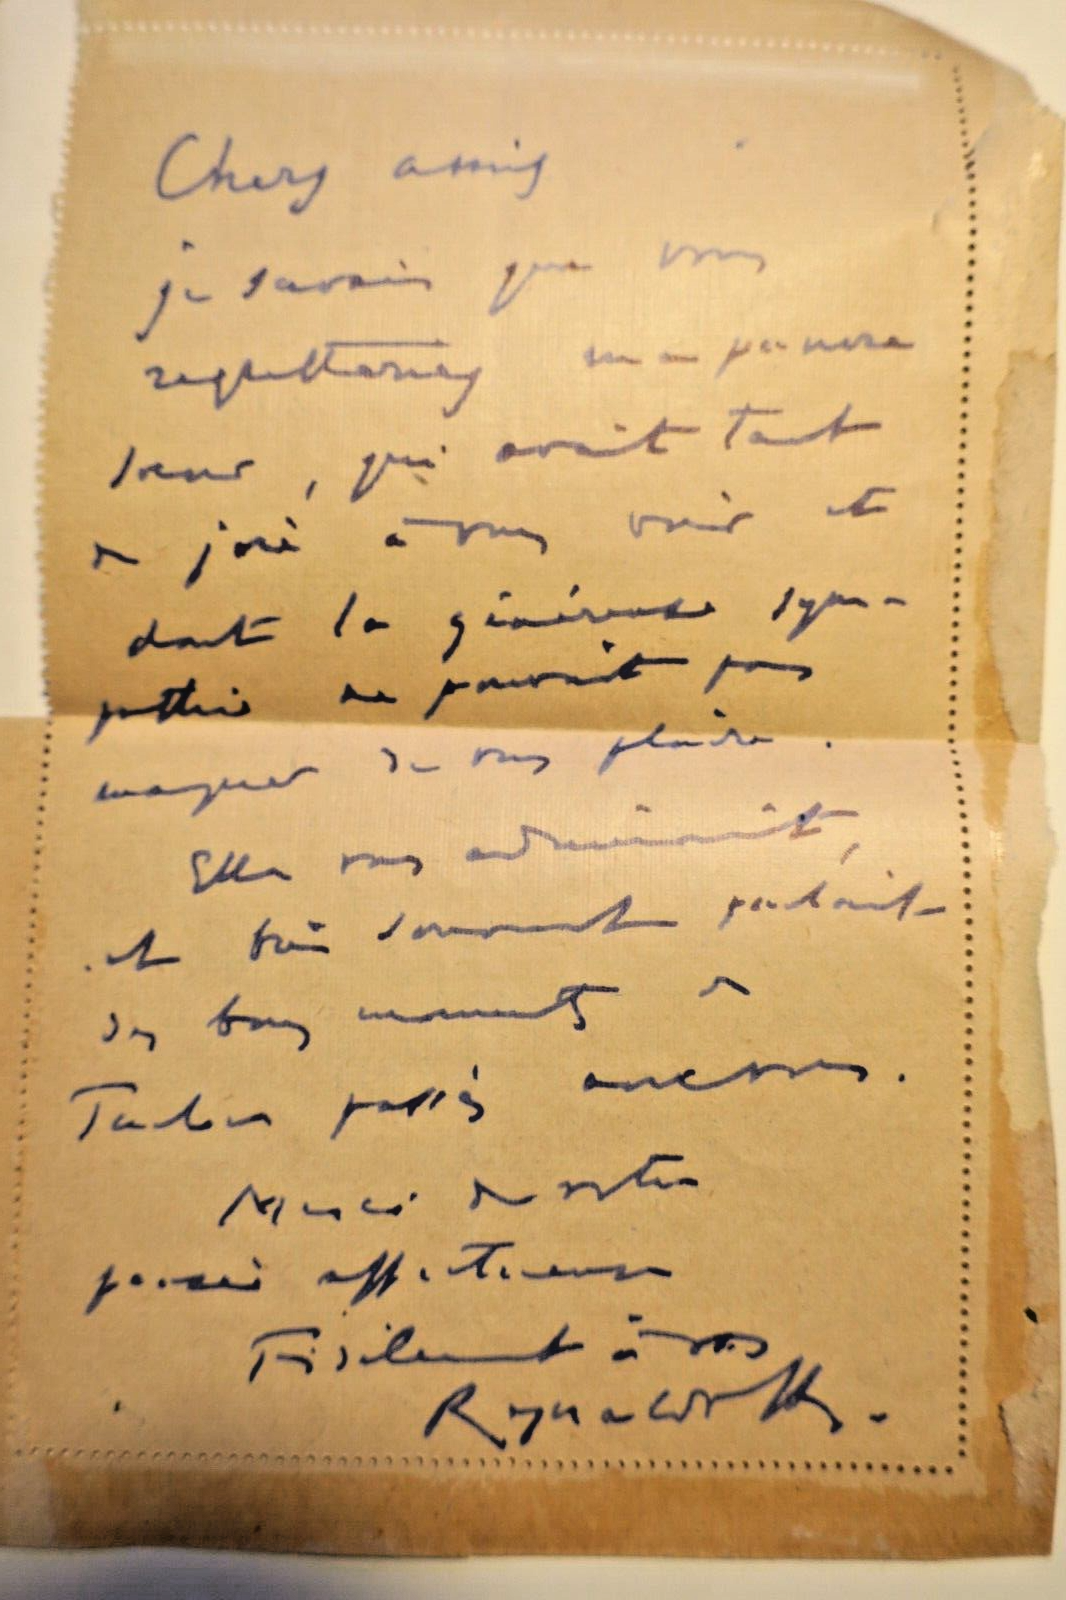 Chers amis
je savais que vous
regretteriez ma pauvre
sœur, qui avait tant
de joie à vous voir et
dont la généreuse sym-
pathie ne pouvait pas
manquer de vous plaire.
Elle vous admirait,
et bien souvent parlait
des bons moments de
Toulon passés avec vous.
Merci de votre
pensée affectueuse
Fidèlement à vous
Reynaldo Hahn.